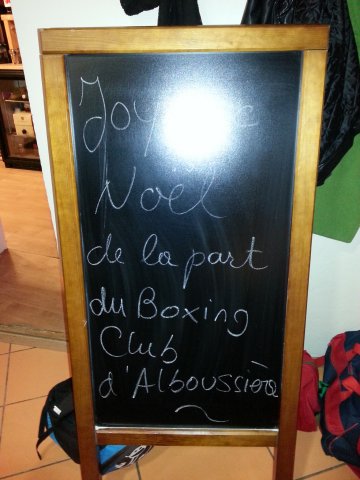 Noël
de la part
du Boxing
Club
d'Alboussière